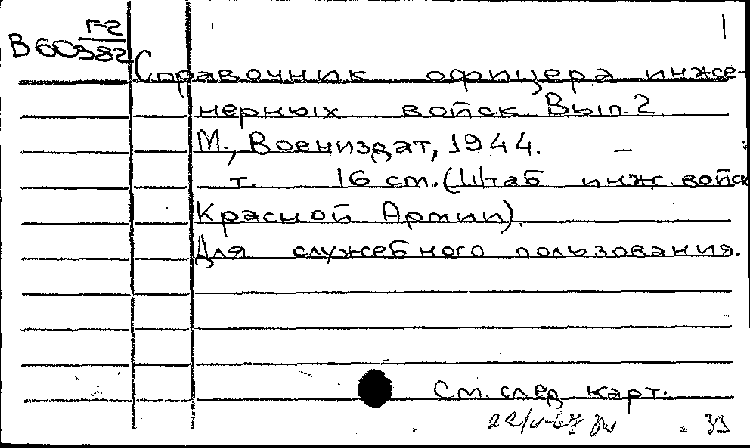 Г-2
В60382
Справочник офицера инже-
нерных войск Вып. 2
М., Воениздат, 1944. —
т. 16 см. (Штаб инж. войск
Красной Армии).
Для служебного пользования.
См. след. карт.
33